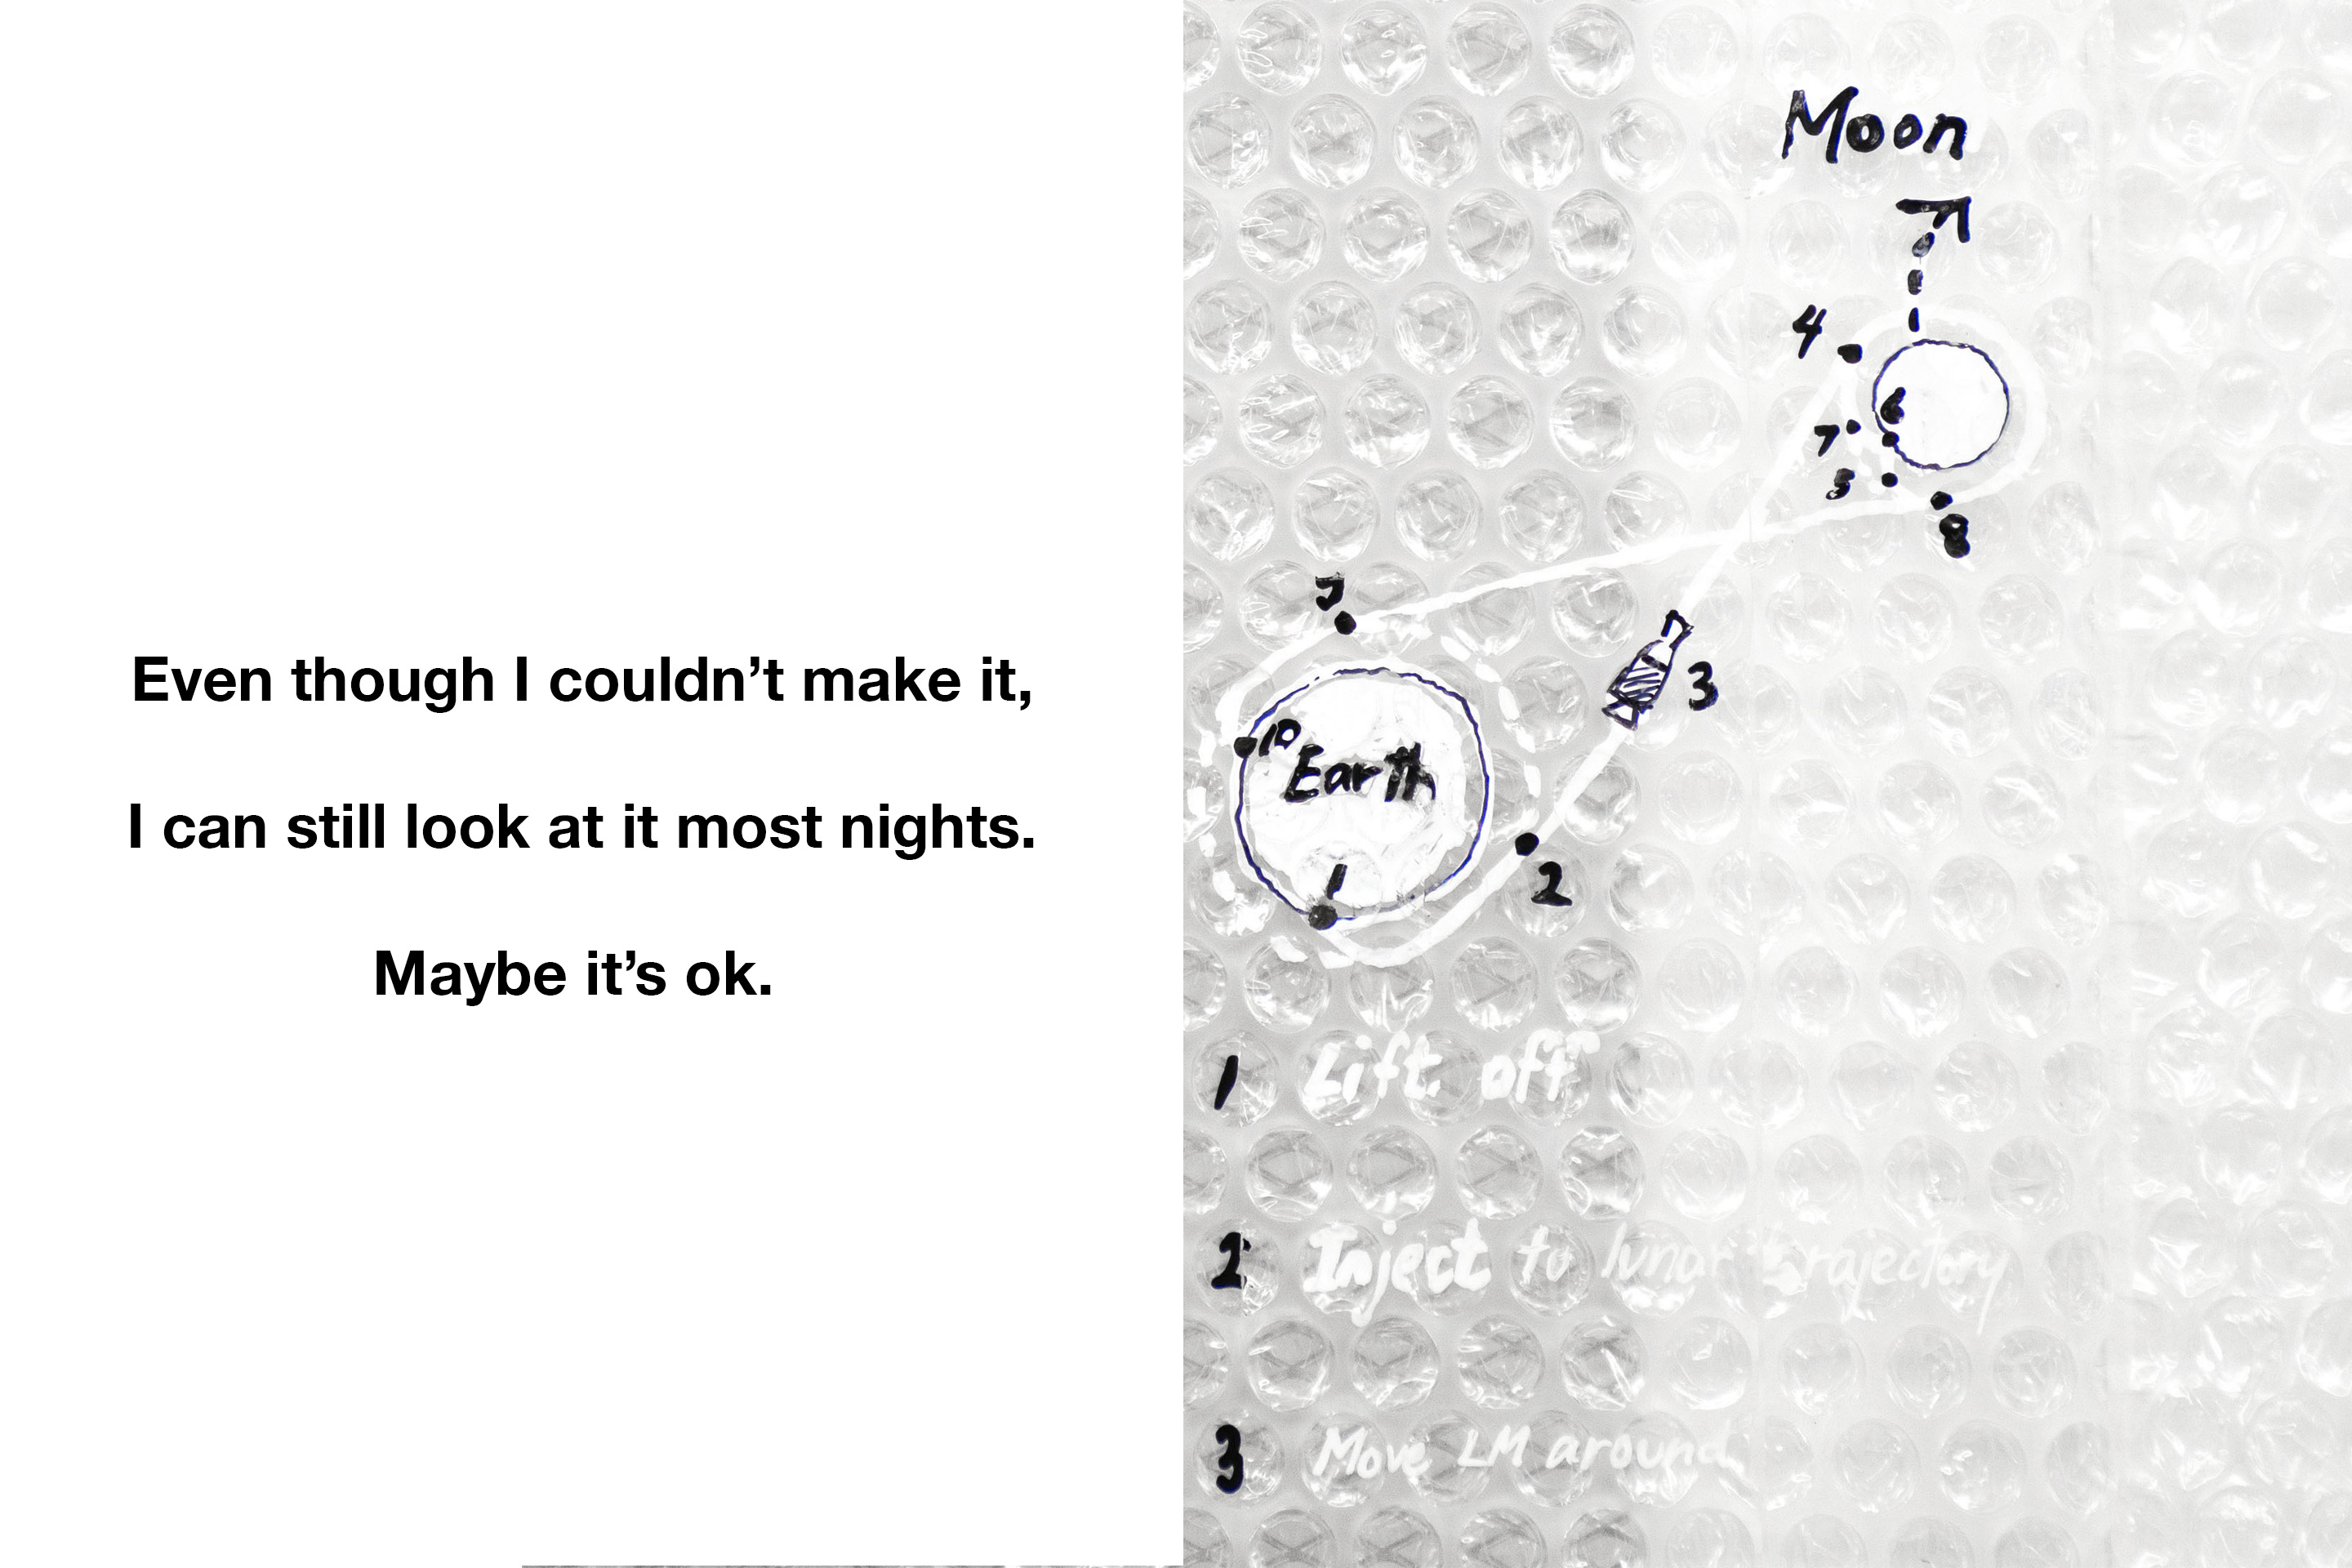 Even though I couldn’t make it,
I can still look at it most nights.
Maybe it’s ok.
Moon
4
6
7
5
8
9
3
10
Earth
1
2
1 Lift off
2 Inject to lunar trajectory
3 Move LM around